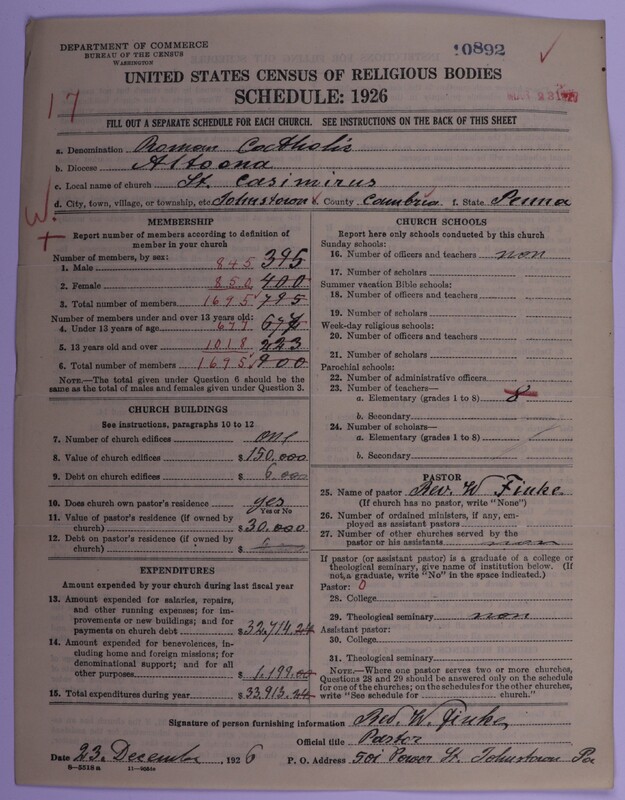 DEPARTMENT OF COMMERCE
BUREAU OF THE CENSUS
WASHINGTON
10892
UNITED STATES CENSUS OF RELIGIOUS BODIES
SCHEDULE: 1926
17
FILL OUT A SEPARATE SCHEDULE FOR EACH CHURCH. SEE INSTRUCTIONS ON THE BACK OF THIS SHEET
a. Denomination Roman Catholic
b. Diocese Altoona
c. Local name of church St. Casimirus
d. City, town, village, or township, etc Johnstown County Cambria f. State Penna
W.
MEMBERSHIP
Report number of members according to definition of
member in your church
Number of members, by sex:
1. Male 845 395
2. Female 850 400
3. Total number of members 1695 795
Number of members under and over 13 years old:
4. Under 13 years of age 677 676
5. 13 years old and over 1018 223
6. Total number of members 1695 900
NOTE.—The total given under Question 6 should be
same as the total of males and females given under Question 3.
CHURCH BUILDINGS
See instructions, paragraphs 10 to 12
7. Number of church edifices one
8. Value of church edifices $ 150.000
9. Debt on church edifices $ 6.000
10. Does church own pastor's residence yes
Yes or No
11. Value of pastor's residence (if owned by
church) $ 30.000
12. Debt on pastor's residence (if owned by
church) $
EXPENDITURES
Amount expended by your church during last fiscal year
13. Amount expended for salaries, repairs,
and other running expenses; for im-
provements or new buildings; and for
payments on church debt $ 32,714.24
14. Amount expended for benevolences, in-
cluding home and foreign missions; for
denominational support; and for all
other purposes $ 1,199.00
15. Total expenditures during year $ 33,913.24
CHURCH SCHOOLS
Report here only schools conducted by this church
Sunday schools:
16. Number of officers and teachers non
17. Number of scholars
Summer vacation Bible schools:
18. Number of officers and teachers
19. Number of scholars
Week-day religious schools:
20. Number of officers and teachers
21. Number of scholars
Parochial schools:
22. Number of administrative officers
23. Number of teachers—
a. Elementary (grades 1 to 8) 8
b. Secondary
24. Number of scholars—
a. Elementary (grades 1 to 8)
b. Secondary
PASTOR
25. Name of pastor Rev. W Finke.
(If church has no pastor, write "None")
26. Number of ordained ministers, if any, em-
ployed as assistant pastors
27. Number of other churches served by the
pastor or his assistants non
If pastor (or assistant pastor) is a graduate of a college or
theological seminary, give name of institution below. (If
not a graduate, write "No" in the space indicated.)
Pastor: 0
28. College
29. Theological seminary non
Assistant pastor:
30. College
31. Theological seminary
NOTE.—Where one pastor serves two or more churches,
Questions 28 and 29 should be answered only on the schedule
for one of the churches; on the schedules for the other churches,
write "See schedule for church."
Signature of person furnishing information Rev. W. Finke,
Official title Pastor
Date 23. December, 1926 P. O. Address 501 Power St. Johnstown Pa
8—5518a